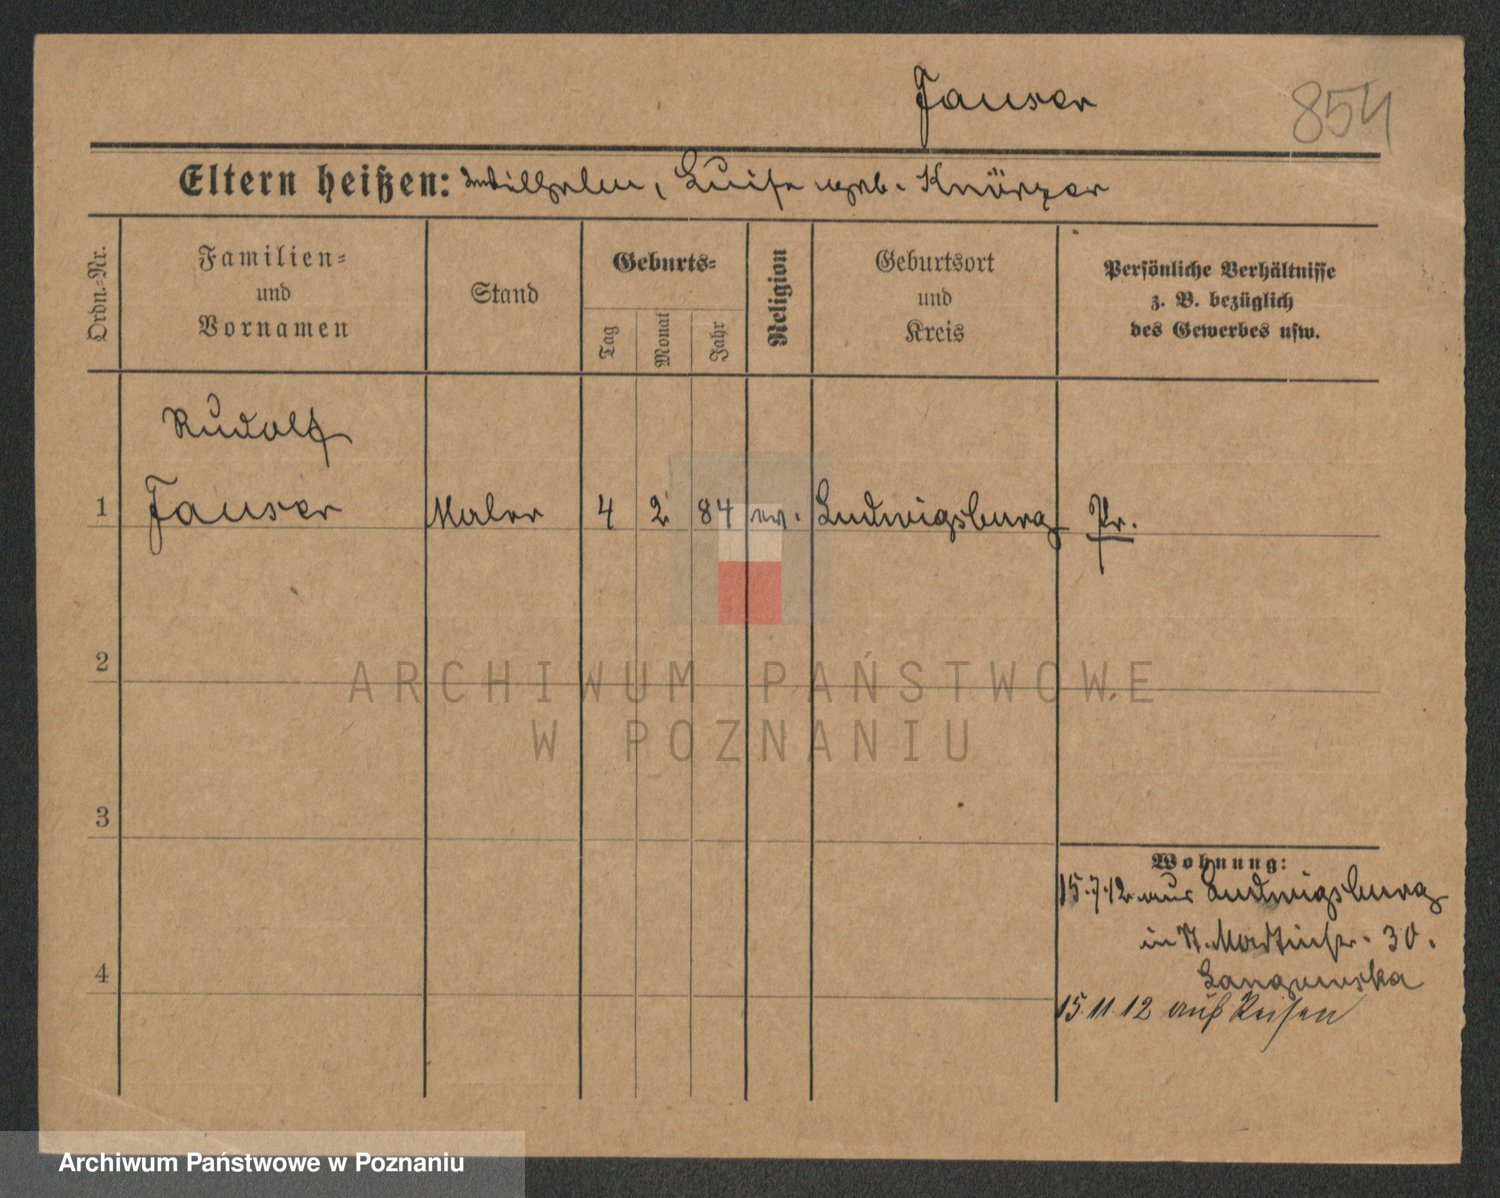 Fauser
854
Eltern heißen: Wilhelm, Luise geb. Knörzer
Ordn.-Nr.
Familien-
und
Vornamen
Stand
Geburts-
Tag
Monat
Jahr
Religion
Geburtsort
und
Kreis
Persönliche Verhältnisse
z. B. bezüglich
des Gewerbes usw.
Rudolf
1 Fauser Maler 4 2 84 ev. Ludwigsburg Pr.
2
3
4
Wohnung:
15.7.12 aus Ludwigsburg
in St. Martinstr. 30.
15.11.12 auf Reisen
ARCHIWUM PAŃSTWOWE
W POZNANIU
Archiwum Państwowe w Poznaniu